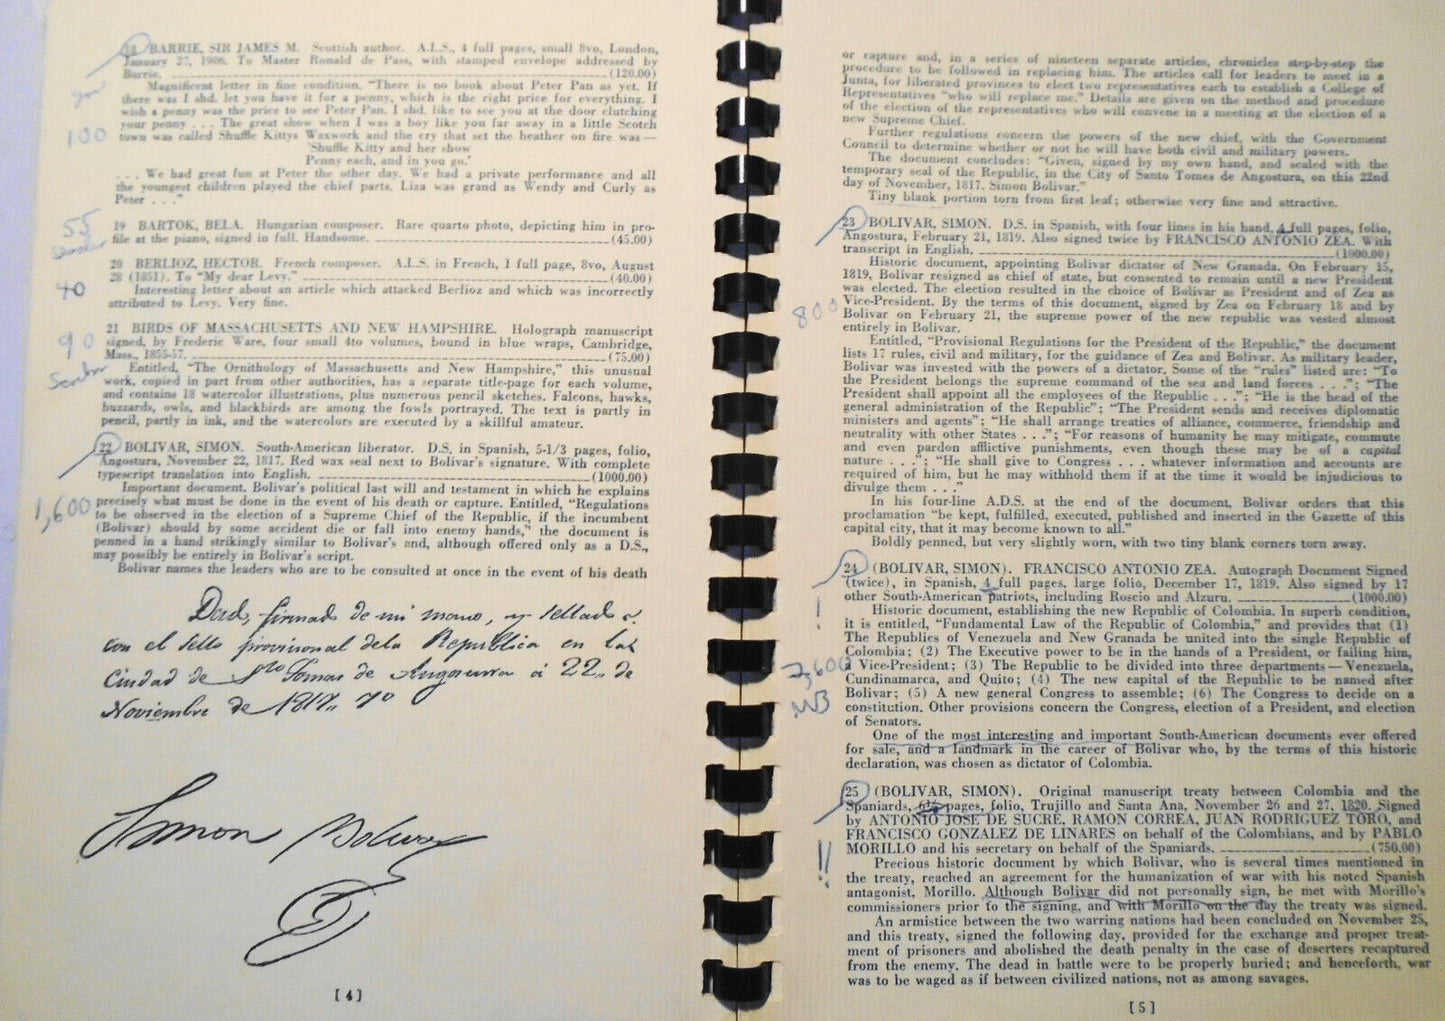 18 BARRIE, SIR JAMES M. Scottish author. A.L.S., 4 full pages, small 8vo, London,
January 27, 1906. To Master Ronald de Pass, with stamped envelope addressed by
Barrie. (120.00)
Magnificent letter in fine condition. "There is no book about Peter Pan as yet. If
there was I shd. let you have it for a penny, which is the right price for everything. I
wish a penny was the price to see Peter Pan. I shd. like to see you at the door clutching
your penny . . . The great show when I was a boy like you far away in a little Scotch
town was called Shuffle Kittys Waxwork and the cry that set the heather on fire was—
'Shuffle Kitty and her show
Penny each, and in you go.'
. . . We had great fun at Peter the other day. We had a private performance and all
the youngest children played the chief parts. Liza was grand as Wendy and Curly as
Peter . . ."
100
19 BARTOK, BELA. Hungarian composer. Rare quarto photo, depicting him in pro-
file at the piano, signed in full. Handsome. (45.00)
55
20 BERLIOZ, HECTOR. French composer. A.L.S. in French, 1 full page, 8vo, August
28 (1851). To "My dear Levy." (40.00)
Interesting letter about an article which attacked Berlioz and which was incorrectly
attributed to Levy. Very fine.
40
21 BIRDS OF MASSACHUSETTS AND NEW HAMPSHIRE. Holograph manuscript
signed, by Frederic Ware, four small 4to volumes, bound in blue wraps, Cambridge,
Mass., 1855-57. (75.00)
Entitled, "The Ornithology of Massachusetts and New Hampshire," this unusual
work, copied in part from other authorities, has a separate title-page for each volume,
and contains 18 watercolor illustrations, plus numerous pencil sketches. Falcons, hawks,
buzzards, owls, and blackbirds are among the fowls portrayed. The text is partly in
pencil, partly in ink, and the watercolors are executed by a skillful amateur.
90
22 BOLIVAR, SIMON. South-American liberator. D.S. in Spanish, 5-1/3 pages, folio,
Angostura, November 22, 1817. Red wax seal next to Bolivar's signature. With complete
typescript translation into English. (1000.00)
Important document. Bolivar's political last will and testament in which he explains
precisely what must be done in the event of his death or capture. Entitled, "Regulations
to be observed in the election of a Supreme Chief of the Republic, if the incumbent
(Bolivar) should by some accident die or fall into enemy hands," the document is
penned in a hand strikingly similar to Bolivar's and, although offered only as a D.S.,
may possibly be entirely in Bolivar's script.
Bolivar names the leaders who are to be consulted at once in the event of his death
1,600
Dad, firmado de mi mano, y sellado
con el sello provicional dela Republica en la
Ciudad de Sto Tomas de Angostura á 22 de
Noviembre de 1817 7º
Simon Bolivar
[4]
or capture and, in a series of nineteen separate articles, chronicles step-by-step the
procedure to be followed in replacing him. The articles call for leaders to meet in a
Junta, for liberated provinces to elect two representatives each to establish a College of
Representatives "who will replace me." Details are given on the method and procedure
of the election of the representatives who will convene in a meeting at the election of a
new Supreme Chief.
Further regulations concern the powers of the new chief, with the Government
Council to determine whether or not he will have both civil and military powers.
The document concludes: "Given, signed by my own hand, and sealed with the
temporary seal of the Republic, in the City of Santo Tomes de Angostura, on this 22nd
day of November, 1817. Simon Bolivar."
Tiny blank portion torn from first leaf; otherwise very fine and attractive.
23 BOLIVAR, SIMON. D.S. in Spanish, with four lines in his hand, 4 full pages, folio,
Angostura, February 21, 1819. Also signed twice by FRANCISCO ANTONIO ZEA. With
transcript in English. (1000.00)
Historic document, appointing Bolivar dictator of New Granada. On February 15,
1819, Bolivar resigned as chief of state, but consented to remain until a new President
was elected. The election resulted in the choice of Bolivar as President and of Zea as
Vice-President. By the terms of this document, signed by Zea on February 18 and by
Bolivar on February 21, the supreme power of the new republic was vested almost
entirely in Bolivar.
Entitled, "Provisional Regulations for the President of the Republic," the document
lists 17 rules, civil and military, for the guidance of Zea and Bolivar. As military leader,
Bolivar was invested with the powers of a dictator. Some of the "rules" listed are: "To
the President belongs the supreme command of the sea and land forces . . ."; "The
President shall appoint all the employees of the Republic . . ."; "He is the head of the
general administration of the Republic"; "The President sends and receives diplomatic
ministers and agents"; "He shall arrange treaties of alliance, commerce, friendship and
neutrality with other States . . ."; "For reasons of humanity he may mitigate, commute
and even pardon afflictive punishments, even though these may be of a capital
nature . . ."; "He shall give to Congress . . . whatever information and accounts are
required of him, but he may withhold them if at the time it would be injudicious to
divulge them . . ."
In his four-line A.D.S. at the end of the document, Bolivar orders that this
proclamation "be kept, fulfilled, executed, published and inserted in the Gazette of this
capital city, that it may become known to all."
Boldly penned, but very slightly worn, with two tiny blank corners torn away.
800
24 (BOLIVAR, SIMON). FRANCISCO ANTONIO ZEA. Autograph Document Signed
(twice), in Spanish, 4 full pages, large folio, December 17, 1819. Also signed by 17
other South-American patriots, including Roscio and Alzuru. (1000.00)
Historic document, establishing the new Republic of Colombia. In superb condition,
it is entitled, "Fundamental Law of the Republic of Colombia," and provides that (1)
The Republics of Venezuela and New Granada be united into the single Republic of
Colombia; (2) The Executive power to be in the hands of a President, or failing him,
a Vice-President; (3) The Republic to be divided into three departments—Venezuela,
Cundinamarca, and Quito; (4) The new capital of the Republic to be named after
Bolivar; (5) A new general Congress to assemble; (6) The Congress to decide on a
constitution. Other provisions concern the Congress, election of a President, and election
of Senators.
One of the most interesting and important South-American documents ever offered
for sale, and a landmark in the career of Bolivar who, by the terms of this historic
declaration, was chosen as dictator of Colombia.
!
25 (BOLIVAR, SIMON). Original manuscript treaty between Colombia and the
Spaniards, 6½ pages, folio, Trujillo and Santa Ana, November 26 and 27, 1820. Signed
by ANTONIO JOSE DE SUCRE, RAMON CORREA, JUAN RODRIGUEZ TORO, and
FRANCISCO GONZALEZ DE LINARES on behalf of the Colombians, and by PABLO
MORILLO and his secretary on behalf of the Spaniards. (750.00)
Precious historic document by which Bolivar, who is several times mentioned in
the treaty, reached an agreement for the humanization of war with his noted Spanish
antagonist, Morillo. Although Bolivar did not personally sign, he met with Morillo's
commissioners prior to the signing, and with Morillo on the day the treaty was signed.
An armistice between the two warring nations had been concluded on November 25,
and this treaty, signed the following day, provided for the exchange and proper treat-
ment of prisoners and abolished the death penalty in the case of deserters recaptured
from the enemy. The dead in battle were to be properly buried; and henceforth, war
was to be waged as if between civilized nations, not as among savages.
!!
[5]